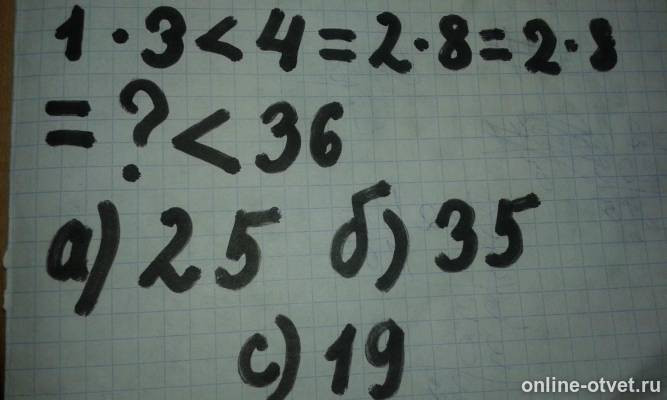 1 · 3 < 4 = 2 · 8 = 2 · 8
= ? < 36
а) 25 б) 35
с) 19
online-otvet.ru